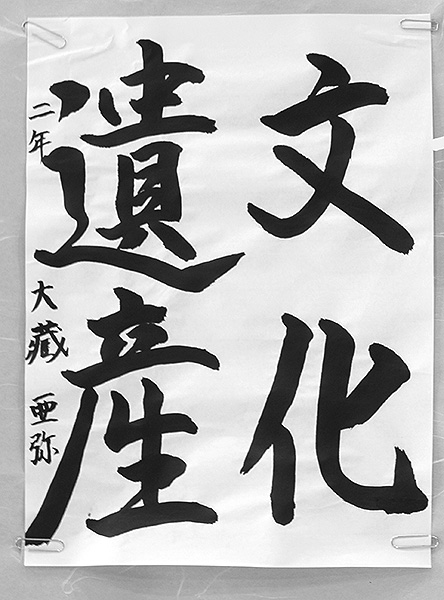 文化
遺産
二年 大藏 亜弥